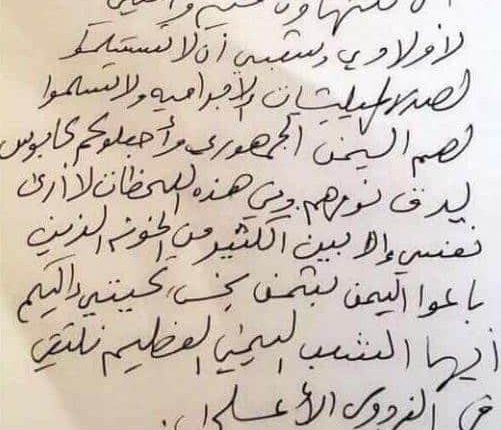 لأولادي وشعبي أن لا تستسلموا
لهذه المليشيات الإجرامية ولا تسلموا
لهم اليمن الجمهوري وأجعلوكم كابوس
نومهم وفي هذه اللحظات لا أرى
نفسي إلا بين الكثير من الخونة الذين
باعوا اليمن بثمن بخس، تحيتي إليكم
أيها الشعب اليمني العظيم نلتقي
في الفردوس الأعلى